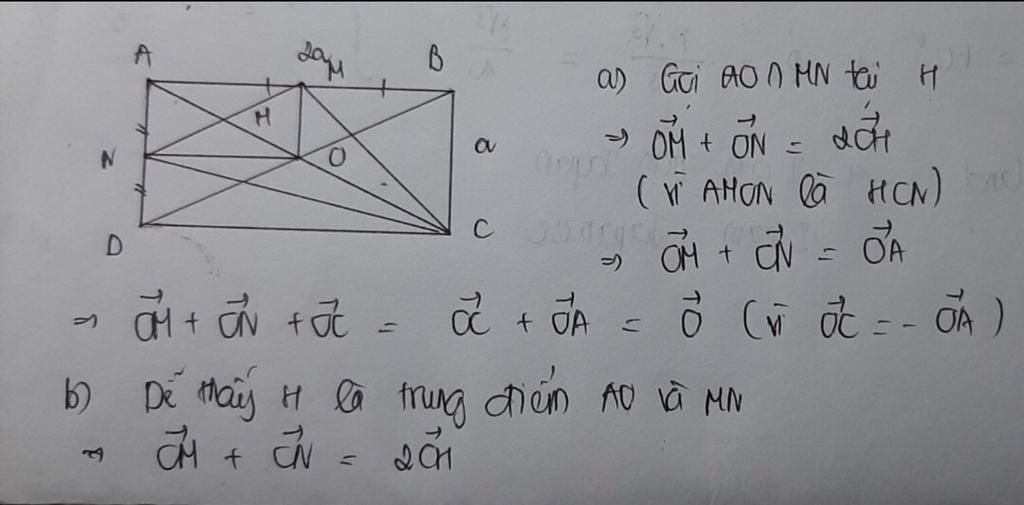 A 2a M B
H
N O a
D C
a) Gọi AO ∩ MN tại H
⇒ OM⃗ + ON⃗ = 2OH⃗
(vì AMON là HCN)
⇒ OM⃗ + ON⃗ = OA⃗
⇒ OM⃗ + ON⃗ + OC⃗ = OC⃗ + OA⃗ = O⃗ (vì OC⃗ = - OA⃗)
b) Dễ thấy H là trung điểm AO và MN
⇒ CM⃗ + CN⃗ = 2CH⃗